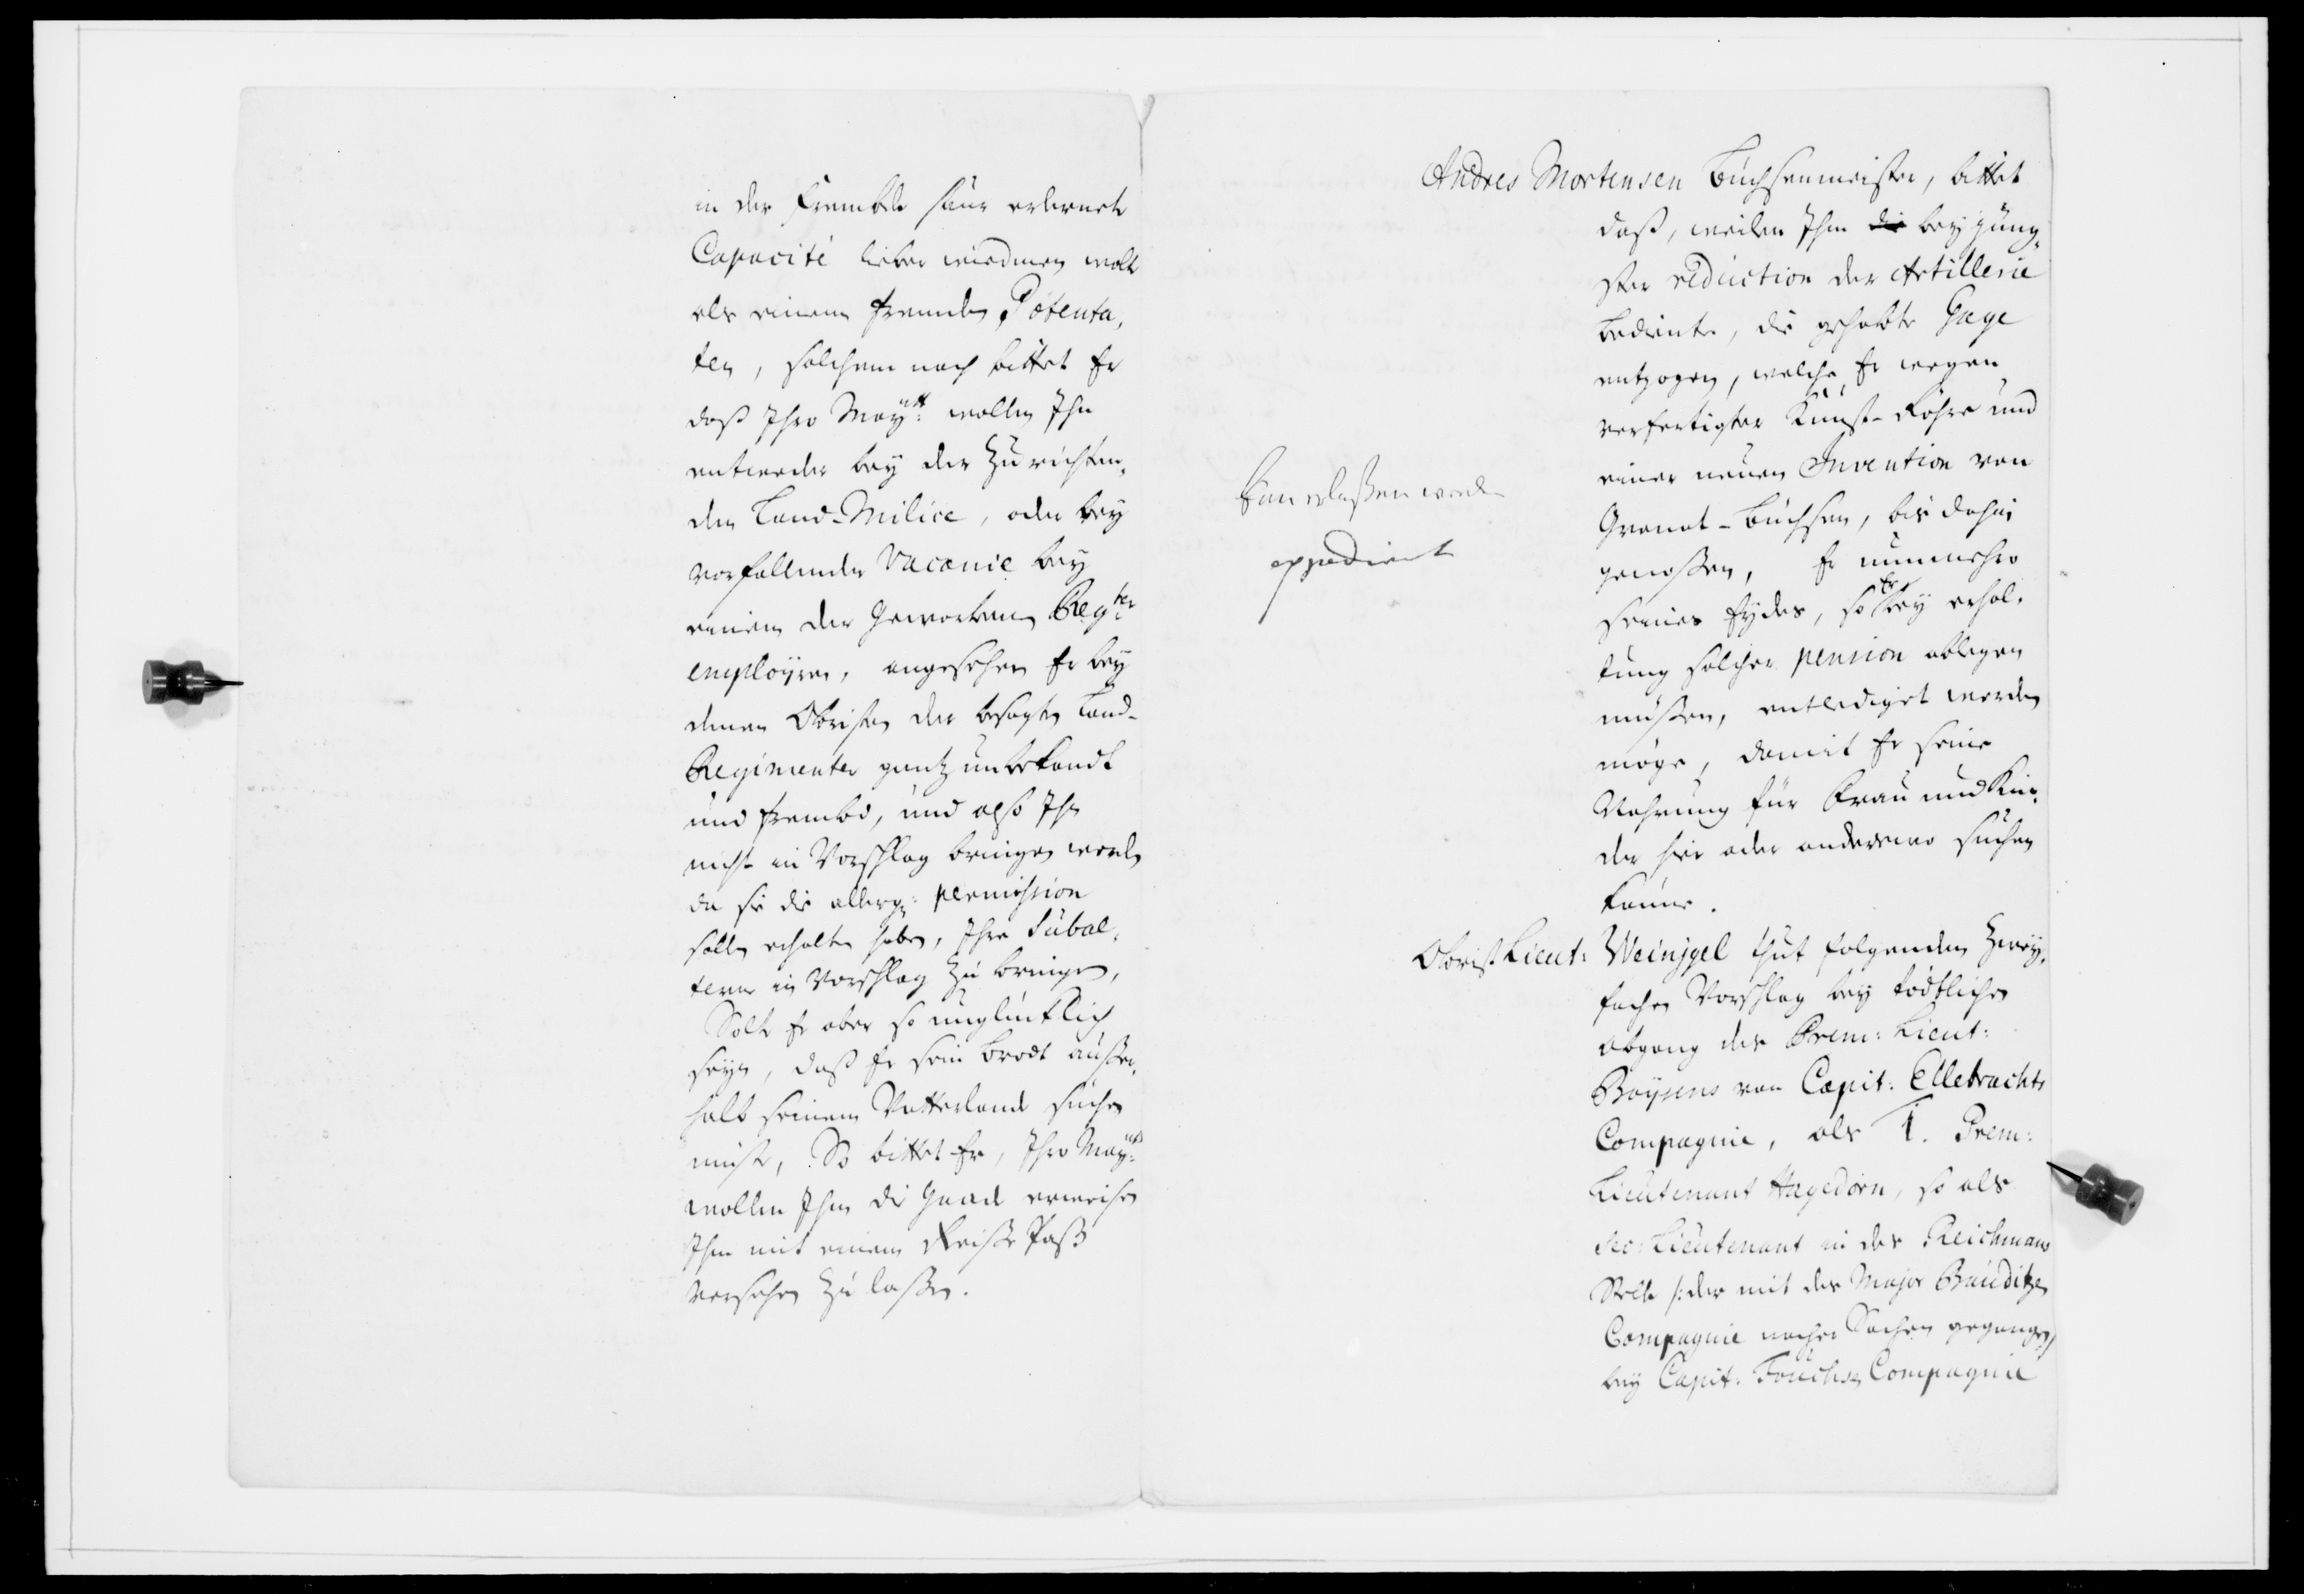 in der Frembde saur erlernete
Capacité lieber wiedmen wolte
als einem frembden Potenta,
ten, solchem nach bittet Er
daß Ihro Maytt: wollen Ihn
entweder bey der Zu richten,
den Land-Milice, oder bey
vorfallender Vacance bey
einem der Geworbenen Regter
employren, angesehen Er bey
denen Obristen der besagten Land-
Regimenter gantz unbekandt
und frembd, und also Ihn
nicht in Vorschlag bringen werden
da sie die allergn: permission
sollen erhalten haben, Ihre Subal,
terne in Vorschlag zu bringen,
Solte Er aber so unglücklich
seyn, daß Er sein Brodt ausser,
halb seinem Vatterlande suchen
müste, So bittet Er, Ihro Maytt:
wollen Ihm die Gnade erweisen
Ihn mit einem Reise Paß
versehen zu lassen.
Andres Mortensen Büchsenmeister, bittet
daß, weilen Ihm die bey jüng,
ster reduction der Artillerie
bediente, die gehabte Gage
entzogen, welche Er wegen
verfertigter Kunst-Röhre und
einer neuen Invention von
Granat-Büchsen, bis dahin
genossen, Er nunmehro
seines Eydes, so Er bey erhal,
tung solcher pension ablegen
müssen, entlediget werden
möge, damit Er seine
Nahrung für Frau und Kin,
der hier oder anderswo suchen
könne.
Kan erlassen werden
expedirt
Obrist Lieut: Weinjgel thut folgenden Zwey,
fachen Vorschlag bey tödtlichen
abgang des Prem: Lieut:
Boysens von Capit: Ellebrachts
Compagnie, als 1. Prem:
Lieutenant Hagedorn, so als
Sec: Lieutenant in des Reichmans
Stelle /: der mit des Major Bauditzen
Compagnie nacher Sachsen gegangen /
bey Capit: Fouchen Compagnie